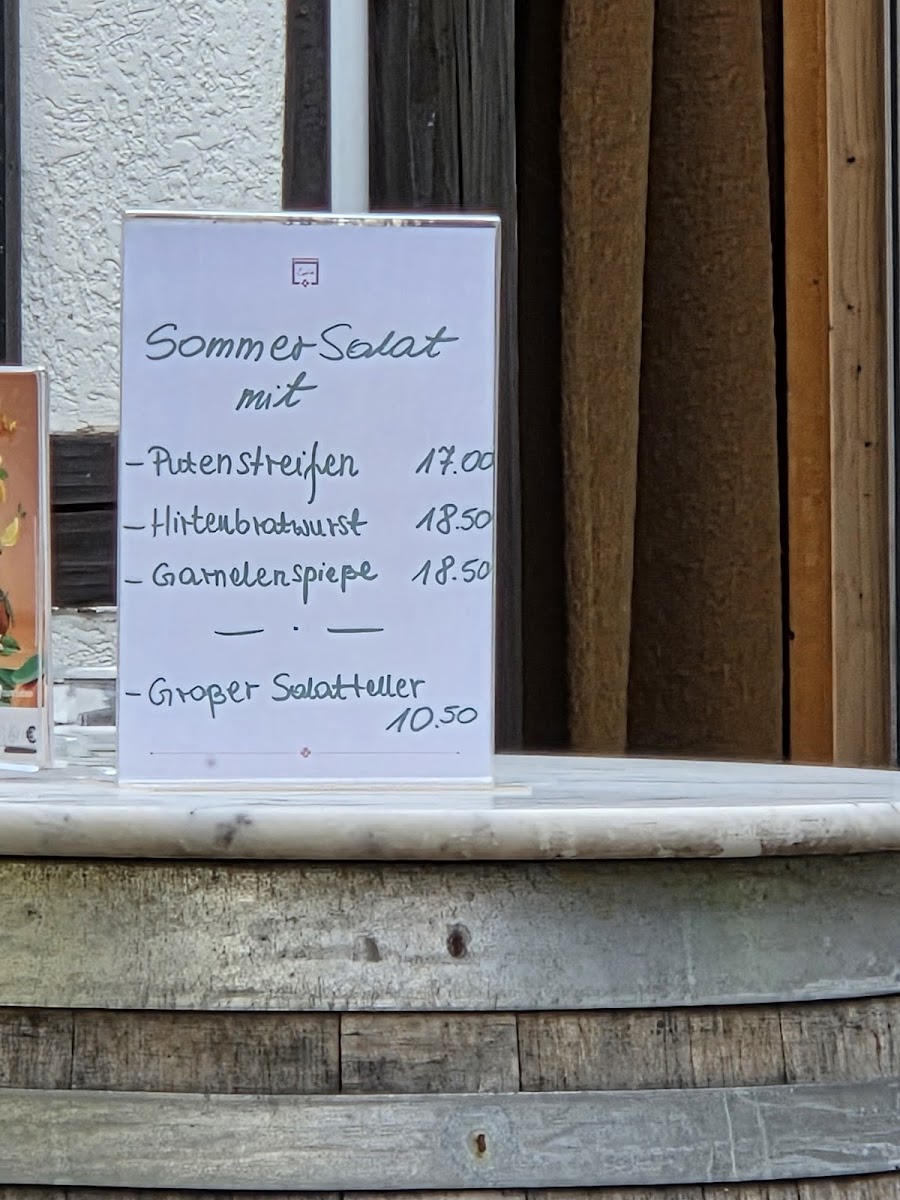 Sommer Salat
mit
- Putenstreifen 17.00
- Hirtenbratwurst 18.50
- Garnelenspieße 18.50
- Großer Salatteller
10.50
€